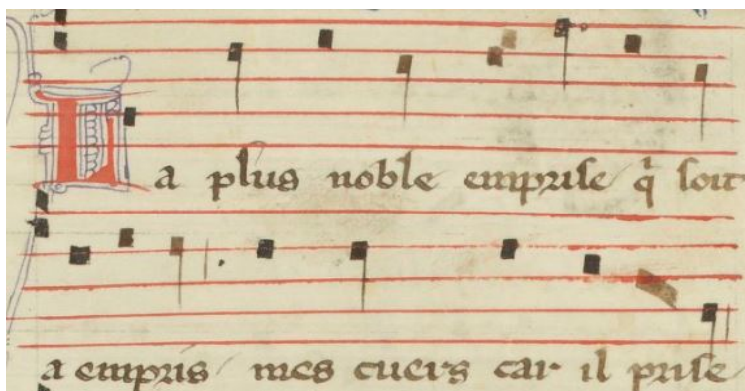 La plus noble emprise q̄ soit
a empris mes cuers car il prise